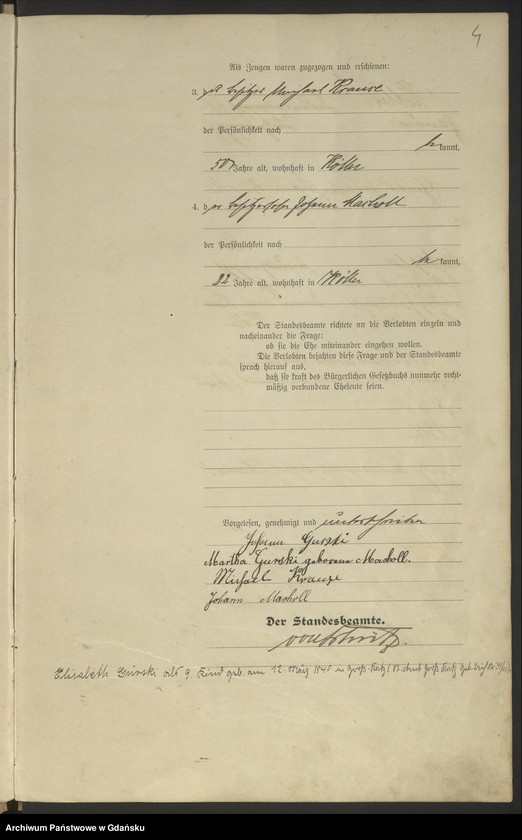 4
Als Zeugen waren zugezogen und erschienen:
3. der Besitzer Michael Krause
der Persönlichkeit nach
be kannt,
50 Jahre alt, wohnhaft in Kölln
4. der Besitzersohn Johann Macholl
der Persönlichkeit nach
be kannt,
22 Jahre alt, wohnhaft in Kölln
Der Standesbeamte richtete an die Verlobten einzeln und
nacheinander die Frage:
ob sie die Ehe miteinander eingehen wollen.
Die Verlobten bejahten diese Frage und der Standesbeamte
sprach hierauf aus,
daß sie kraft des Bürgerlichen Gesetzbuchs nunmehr recht-
mäßig verbundene Eheleute seien.
Vorgelesen, genehmigt und unterschrieben
Johann Gurski
Martha Gurski geborene Macholl.
Michael Krauze
Johann Macholl
Der Standesbeamte.
Elisabeth Gurski als 9. Kind geb. am 12. März 1940 in Groß-Katz
Archiwum Państwowe w Gdańsku